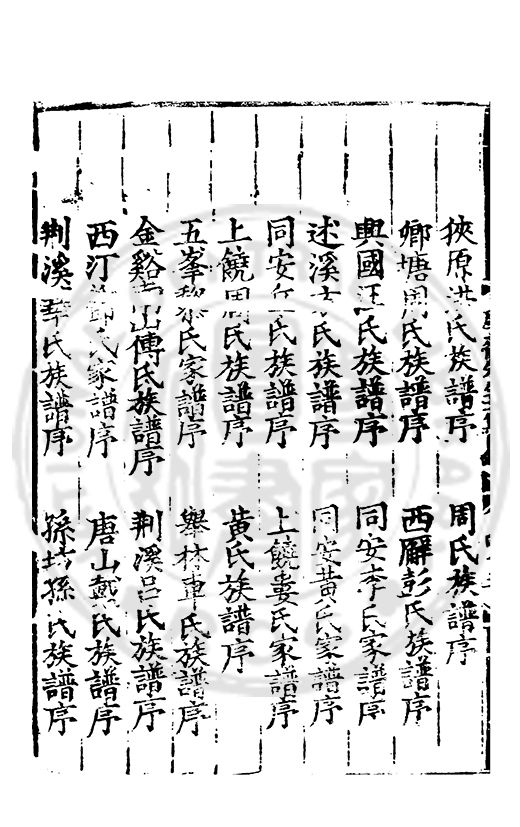 狹原洪氏族譜序　周氏族譜序
鄉塘周氏族譜序　西廨彭氏族譜序
興國汪氏族譜序　同安李氏家譜序
述溪氏族譜序　同安黃氏家譜序
同安氏族譜序　上饒婁氏家譜序
上饒周氏族譜序　黃氏族譜序
五峯黎氏家譜序　舉林車氏族譜序
金谿山傅氏族譜序　荆溪呂氏族譜序
西汀鄭氏家譜序　唐山戴氏族譜序
荆溪氏族譜序　孫坊孫氏族譜序